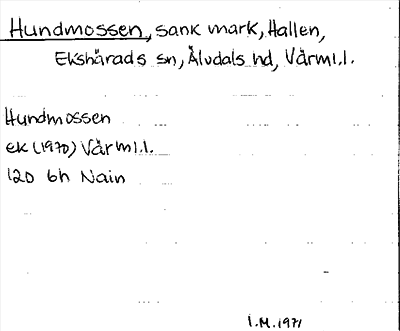 Hundmossen, sank mark, Hallen,
Ekshärads sn, Älvdals hd, Värml.l.
Hundmossen
ek (1970) Värml.l.
12D 6h Nain
I.M. 1971